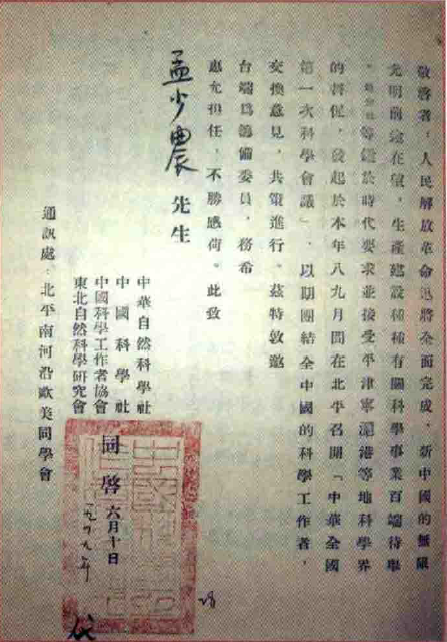 敬啓者：人民解放革命迅將全面完成，新中國的無限
光明前途在望，生產建設種種有關科學事業百端待舉
等鑑於時代要求並接受平津寧滬港等地科學界
的督促，發起於本年八九月間在北平召開「中華全國
第一次科學會議」，以期團結全中國的科學工作者，
交換意見，共策進行。茲特敦邀
台端爲籌備委員，務希
惠允担任，不勝感荷。此致
孟少農先生
中華自然科學社
中國科學社
中國科學工作者協會
東北自然科學研究會
同啓 六月十日
一九四九年
通訊處：北平南河沿歐美同學會
28